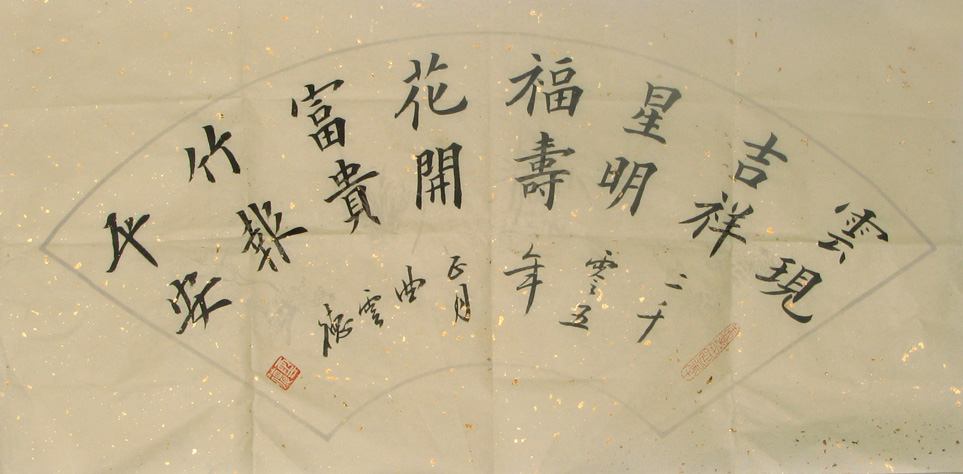 雲現
吉祥
星明
福壽
花開
富貴
竹報
平安
二千
零五
年
正月
曲
雲
德